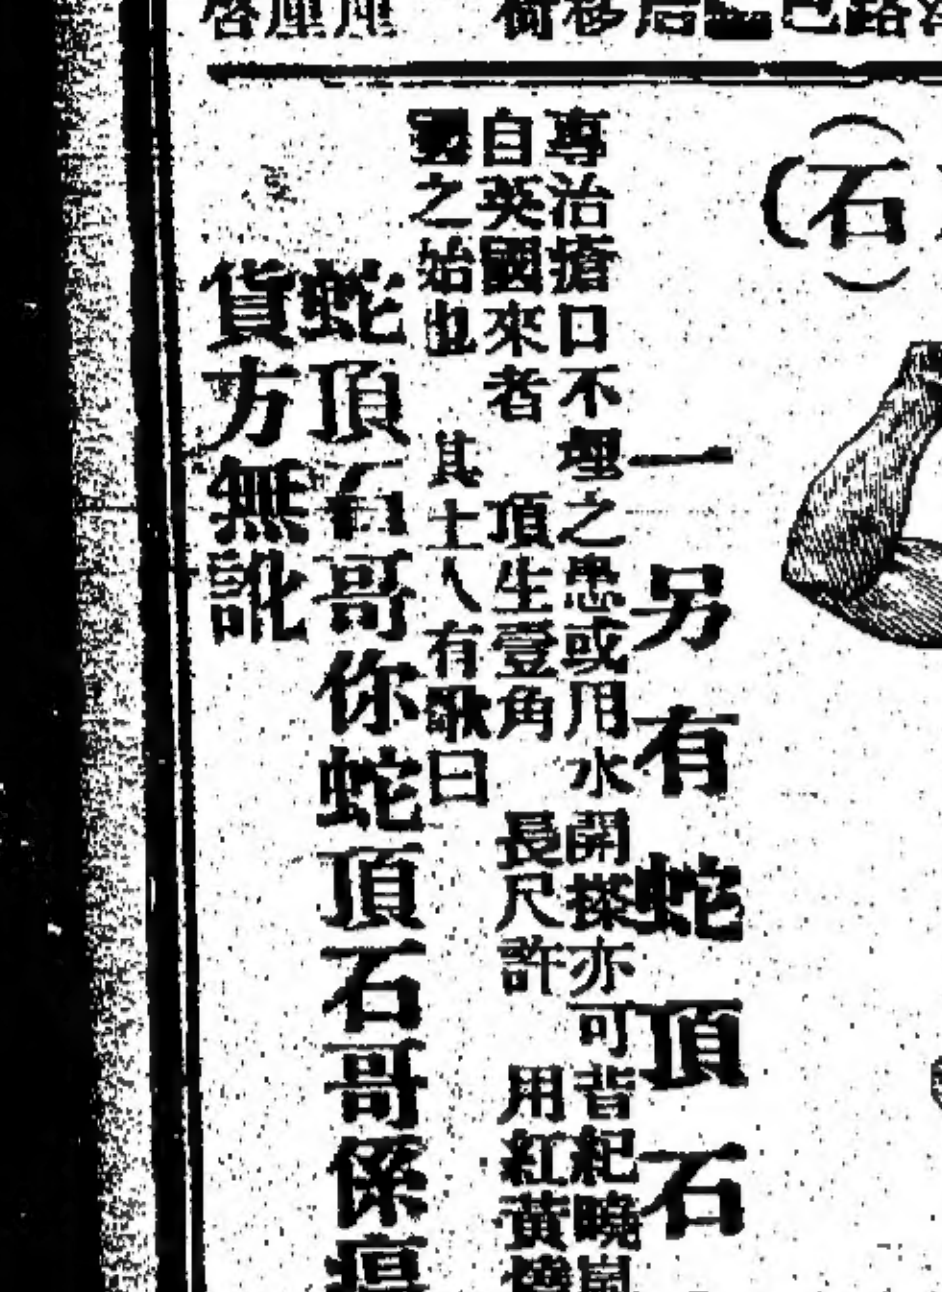 石
一另有蛇頂石
專治瘡口不埋之患或用水開搽亦可背紀曉嵐
自英國來者 頂生壹角 長尺許 用紅黃
之始也 其土人有歌曰
蛇頂石哥你蛇頂石哥係
貨方無訛